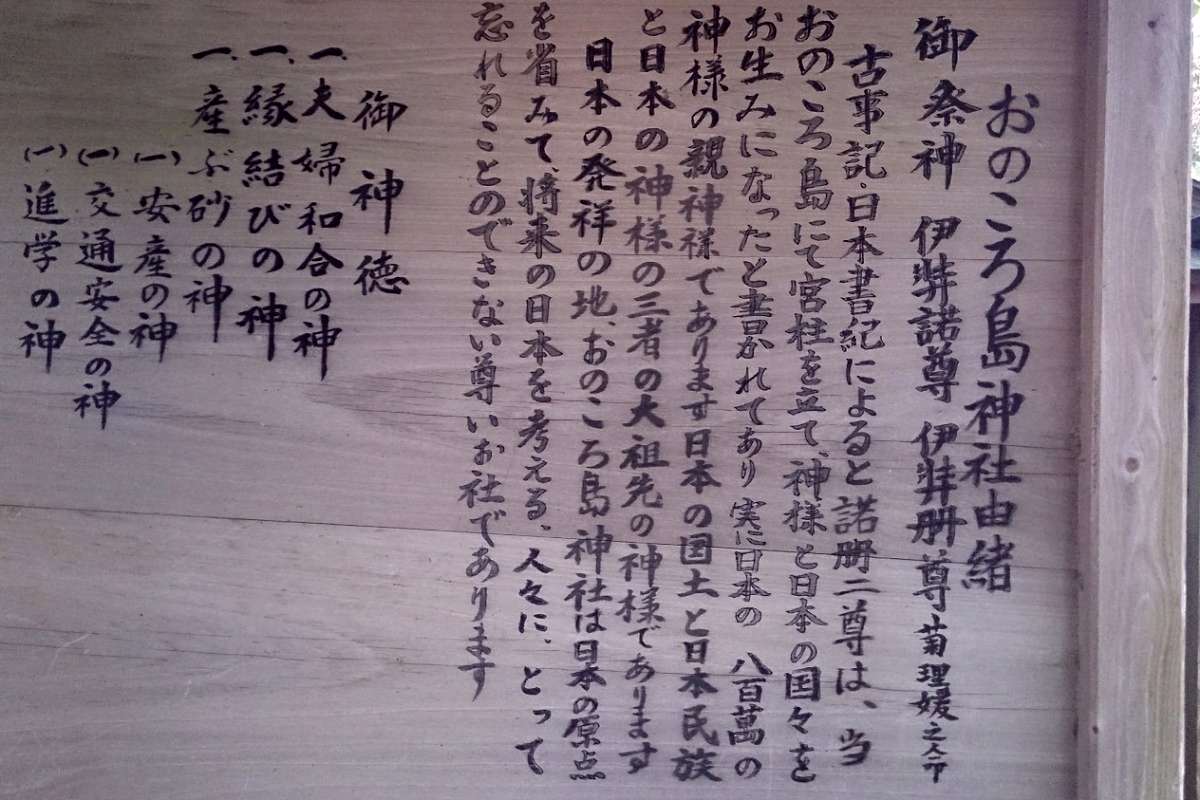 おのころ島神社由緒
御祭神 伊弉諾尊 伊弉冊尊 菊理媛之命
古事記・日本書紀によると諾冊二尊は、当
おのころ島にて宮柱を立て、神様と日本の国々を
お生みになったと書かれてあり 実に日本の 八百萬の
神様の親神様であります日本の国土と日本民族
と日本の神様の三者の大祖先の神様であります
日本の発祥の地、おのころ島神社は日本の原点
を省みて、将来の日本を考える、人々に、とって
忘れることのできない尊いお社であります
御神徳
一、夫婦和合の神
一、縁結びの神
一、産ぶ砂の神
(一)安産の神
(一)交通安全の神
(一)進学の神